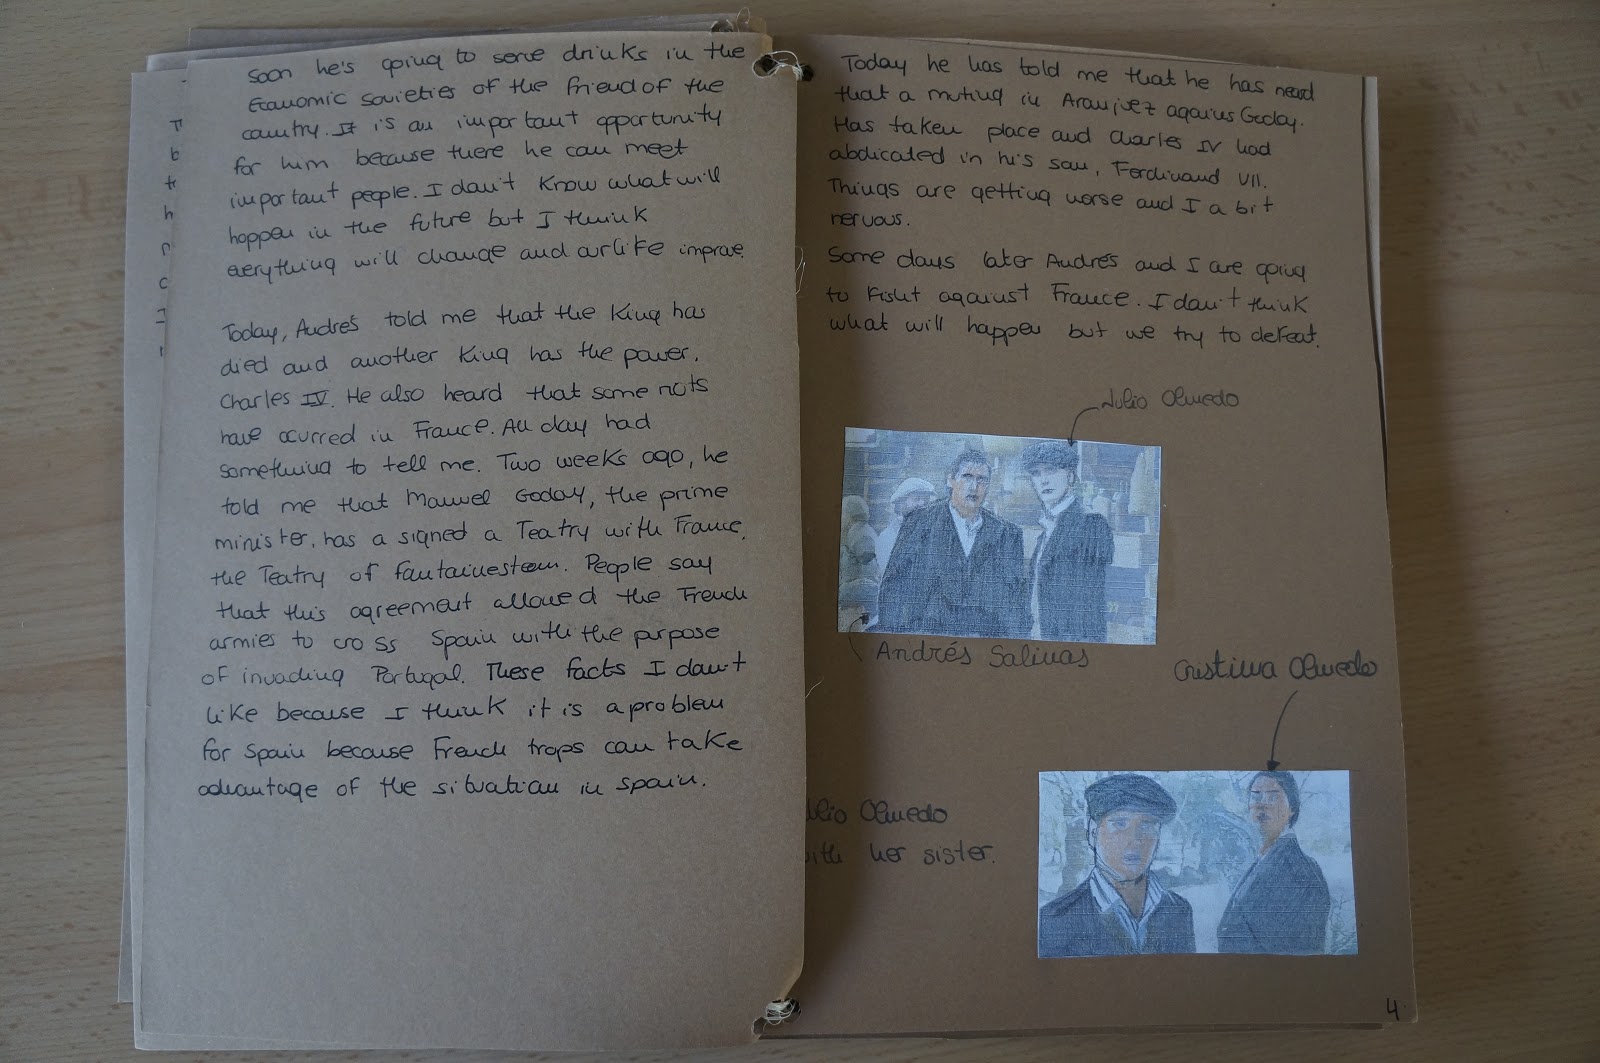 Soon he's going to serve drinks in the
Economic Societies of the Friend of the
country. It is an important opportunity
for him because there he can meet
important people. I dan't know what will
happen in the future but I think
everything will change and our like improve.
Today, Andrés told me that the King has
died and another King has the power,
Charles IV. He also heard that some riots
have ocurred in France. All day had
something to tell me. Two weeks ago, he
told me that Manuel Goday, the prime
minister, has a signed a Teatry with France,
the Teatry of Fantainesteau. People say
that this agreement allowed the French
armies to cross Spain with the purpose
of invading Portugal. These facts I dan't
like because I think it is a problem
for Spain because French trops can take
advantage of the situation in Spain.
Today he has told me that he has heard
that a muting in Aranjuez agains Goday.
Has taken place and Charles IV had
abdicated in his son, Ferdinand VII.
Things are getting worse and I a bit
nervous.
Some days later Andrés and I are going
to fight against France. I dan't think
what will happen but we try to defeat.
Julio Olmedo
Andrés Salinas
Cristina Olmedo
Olmedo
her sister.
4